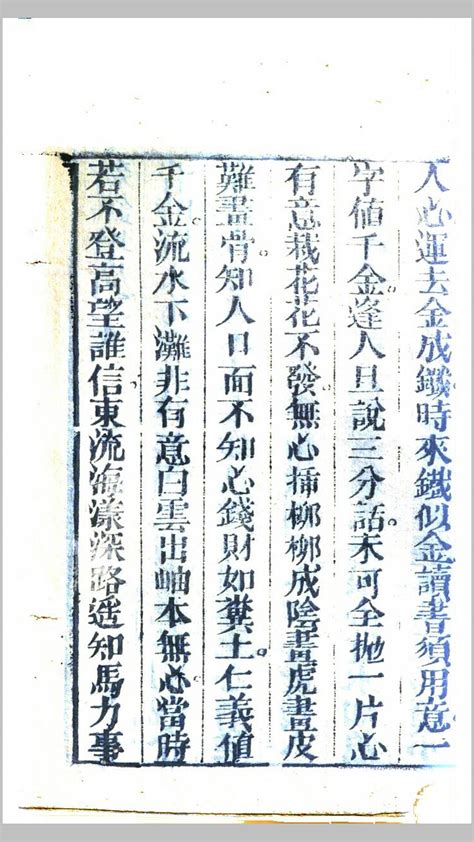 人心運去金成鐵時來鐵似金讀書須用意一
字值千金。逢人且說三分話。未可全抛一片心
有意栽花花不發。無心揷柳柳成陰畫虎畫皮
難畫骨。知人口面不知心錢財如糞土。仁義值
千金。流水下灘非有意白雲出岫本無心當時
若不登高望誰信東流海漾深路遥知馬力事